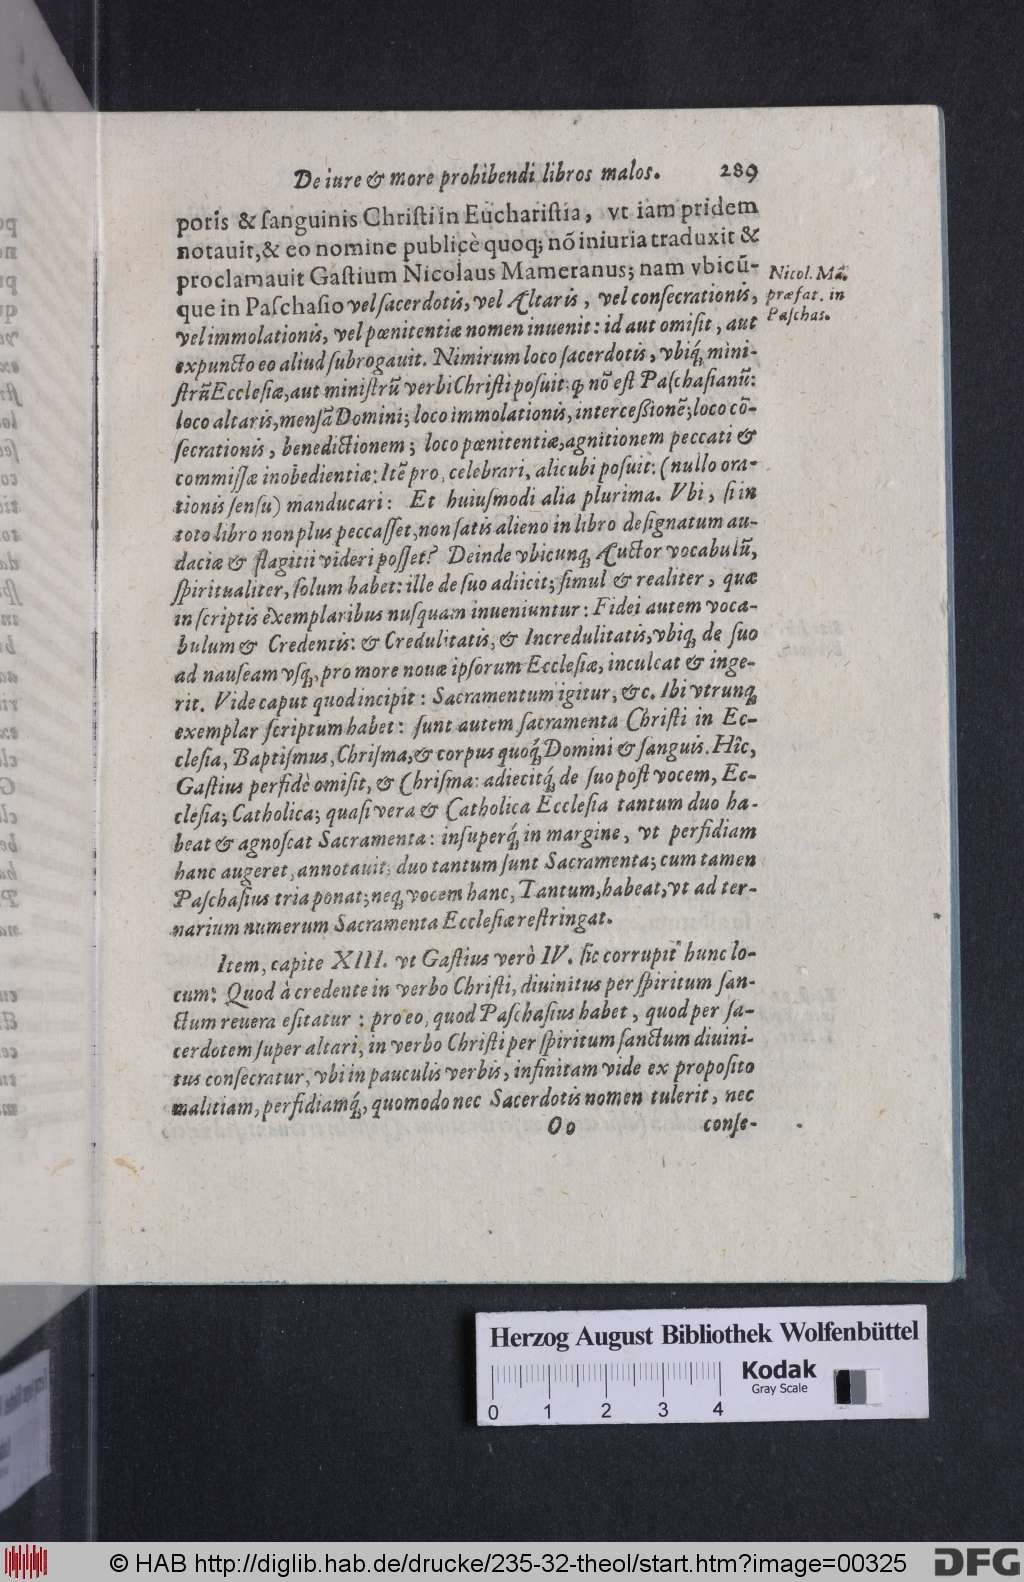 De iure & more prohibendi libros malos. 289
poris & ſanguinis Chriſti in Euchariſtia, vt iam pridem
notauit, & eo nomine publicè quoq; nõ iniuria traduxit &
proclamauit Gaſtium Nicolaus Mameranus; nam vbicũ-
que in Paſchaſio vel ſacerdotis, vel Altaris, vel conſecrationis,
vel immolationis, vel pœnitentiæ nomen inuenit: id aut omiſit, aut
expuncto eo aliud ſubrogauit. Nimirum loco ſacerdotis, vbiq́; mini-
ſtrũ Eccleſiæ, aut miniſtrũ verbi Chriſti poſuit: ꝙ nõ eſt Paſchaſianũ:
loco altaris, menſã Domini; loco immolationis, interceßionẽ; loco cõ-
ſecrationis, benedictionem; loco pœnitentiæ, agnitionem peccati &
commiſſæ inobedientiæ: Itẽ pro, celebrari, alicubi poſuit: (nullo ora-
tionis ſenſu) manducari: Et huiuſmodi alia plurima. Vbi, ſi in
toto libro non plus peccaſſet, non ſatis alieno in libro deſignatum au-
daciæ & flagitii videri poſſet? Deinde vbicunq; Auctor vocabulũ,
ſpiritualiter, ſolum habet: ille de ſuo adiicit; ſimul & realiter, quæ
in ſcriptis exemplaribus nuſquam inueniuntur: Fidei autem voca-
bulum & Credentis: & Credulitatis, & Incredulitatis, vbiq; de ſuo
ad nauſeam vſq;, pro more nouæ ipſorum Eccleſiæ, inculcat & inge-
rit. Vide caput quod incipit: Sacramentum igitur, &c. Ibi vtrunq;
exemplar ſcriptum habet: ſunt autem ſacramenta Chriſti in Ec-
cleſia, Baptiſmus, Chriſma, & corpus quoq́; Domini & ſanguis. Hîc,
Gaſtius perfidè omiſit, & Chriſma: adiecitq́; de ſuo poſt vocem, Ec-
cleſia; Catholica; quaſi vera & Catholica Eccleſia tantum duo ha-
beat & agnoſcat Sacramenta: inſuperq́; in margine, vt perfidiam
hanc augeret, annotauit; duo tantum ſunt Sacramenta; cum tamen
Paſchaſius tria ponat; neq; vocem hanc, Tantum, habeat, vt ad ter-
narium numerum Sacramenta Eccleſiæ reſtringat.
Item, capite XIII. vt Gaſtius verò IV. ſic corrupit hunc lo-
cum: Quod à credente in verbo Chriſti, diuinitus per ſpiritum ſan-
ctum reuera eſitatur: pro eo, quod Paſchaſius habet, quod per ſa-
cerdotem ſuper altari, in verbo Chriſti per ſpiritum ſanctum diuini-
tus conſecratur, vbi in pauculis verbis, infinitam vide ex propoſito
malitiam, perfidiamq́;, quomodo nec Sacerdotis nomen tulerit, nec
Oo conſe-
Nicol. Mã.
præfat. in
Paſchas.
Herzog August Bibliothek Wolfenbüttel
Kodak
Gray Scale
0 1 2 3 4
© HAB http://diglib.hab.de/drucke/235-32-theol/start.htm?image=00325
DFG